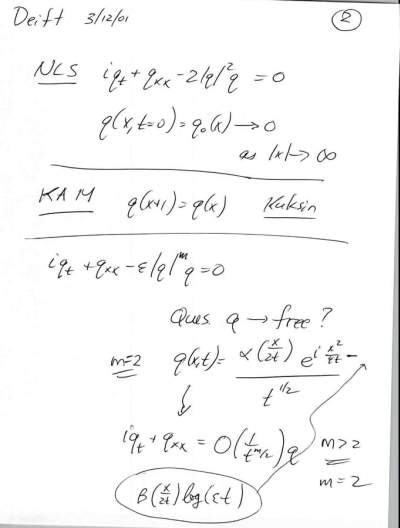 Deift 3/12/01 2
NLS iq_t + q_xx - 2|q|^2 q = 0
q(x,t=0) = q_0(x) → 0
as |x| → ∞
KAM q(x+1) = q(x) Kuksin
iq_t + q_xx - ε|q|^m q = 0
Ques q → free ?
m=2 q(x,t) = α(x/2t) e^{i x^2/4t - / t^{1/2}
iq_t + q_xx = O(1/t^{m/2}) q m>2
m=2
β(x/2t) log(εt)